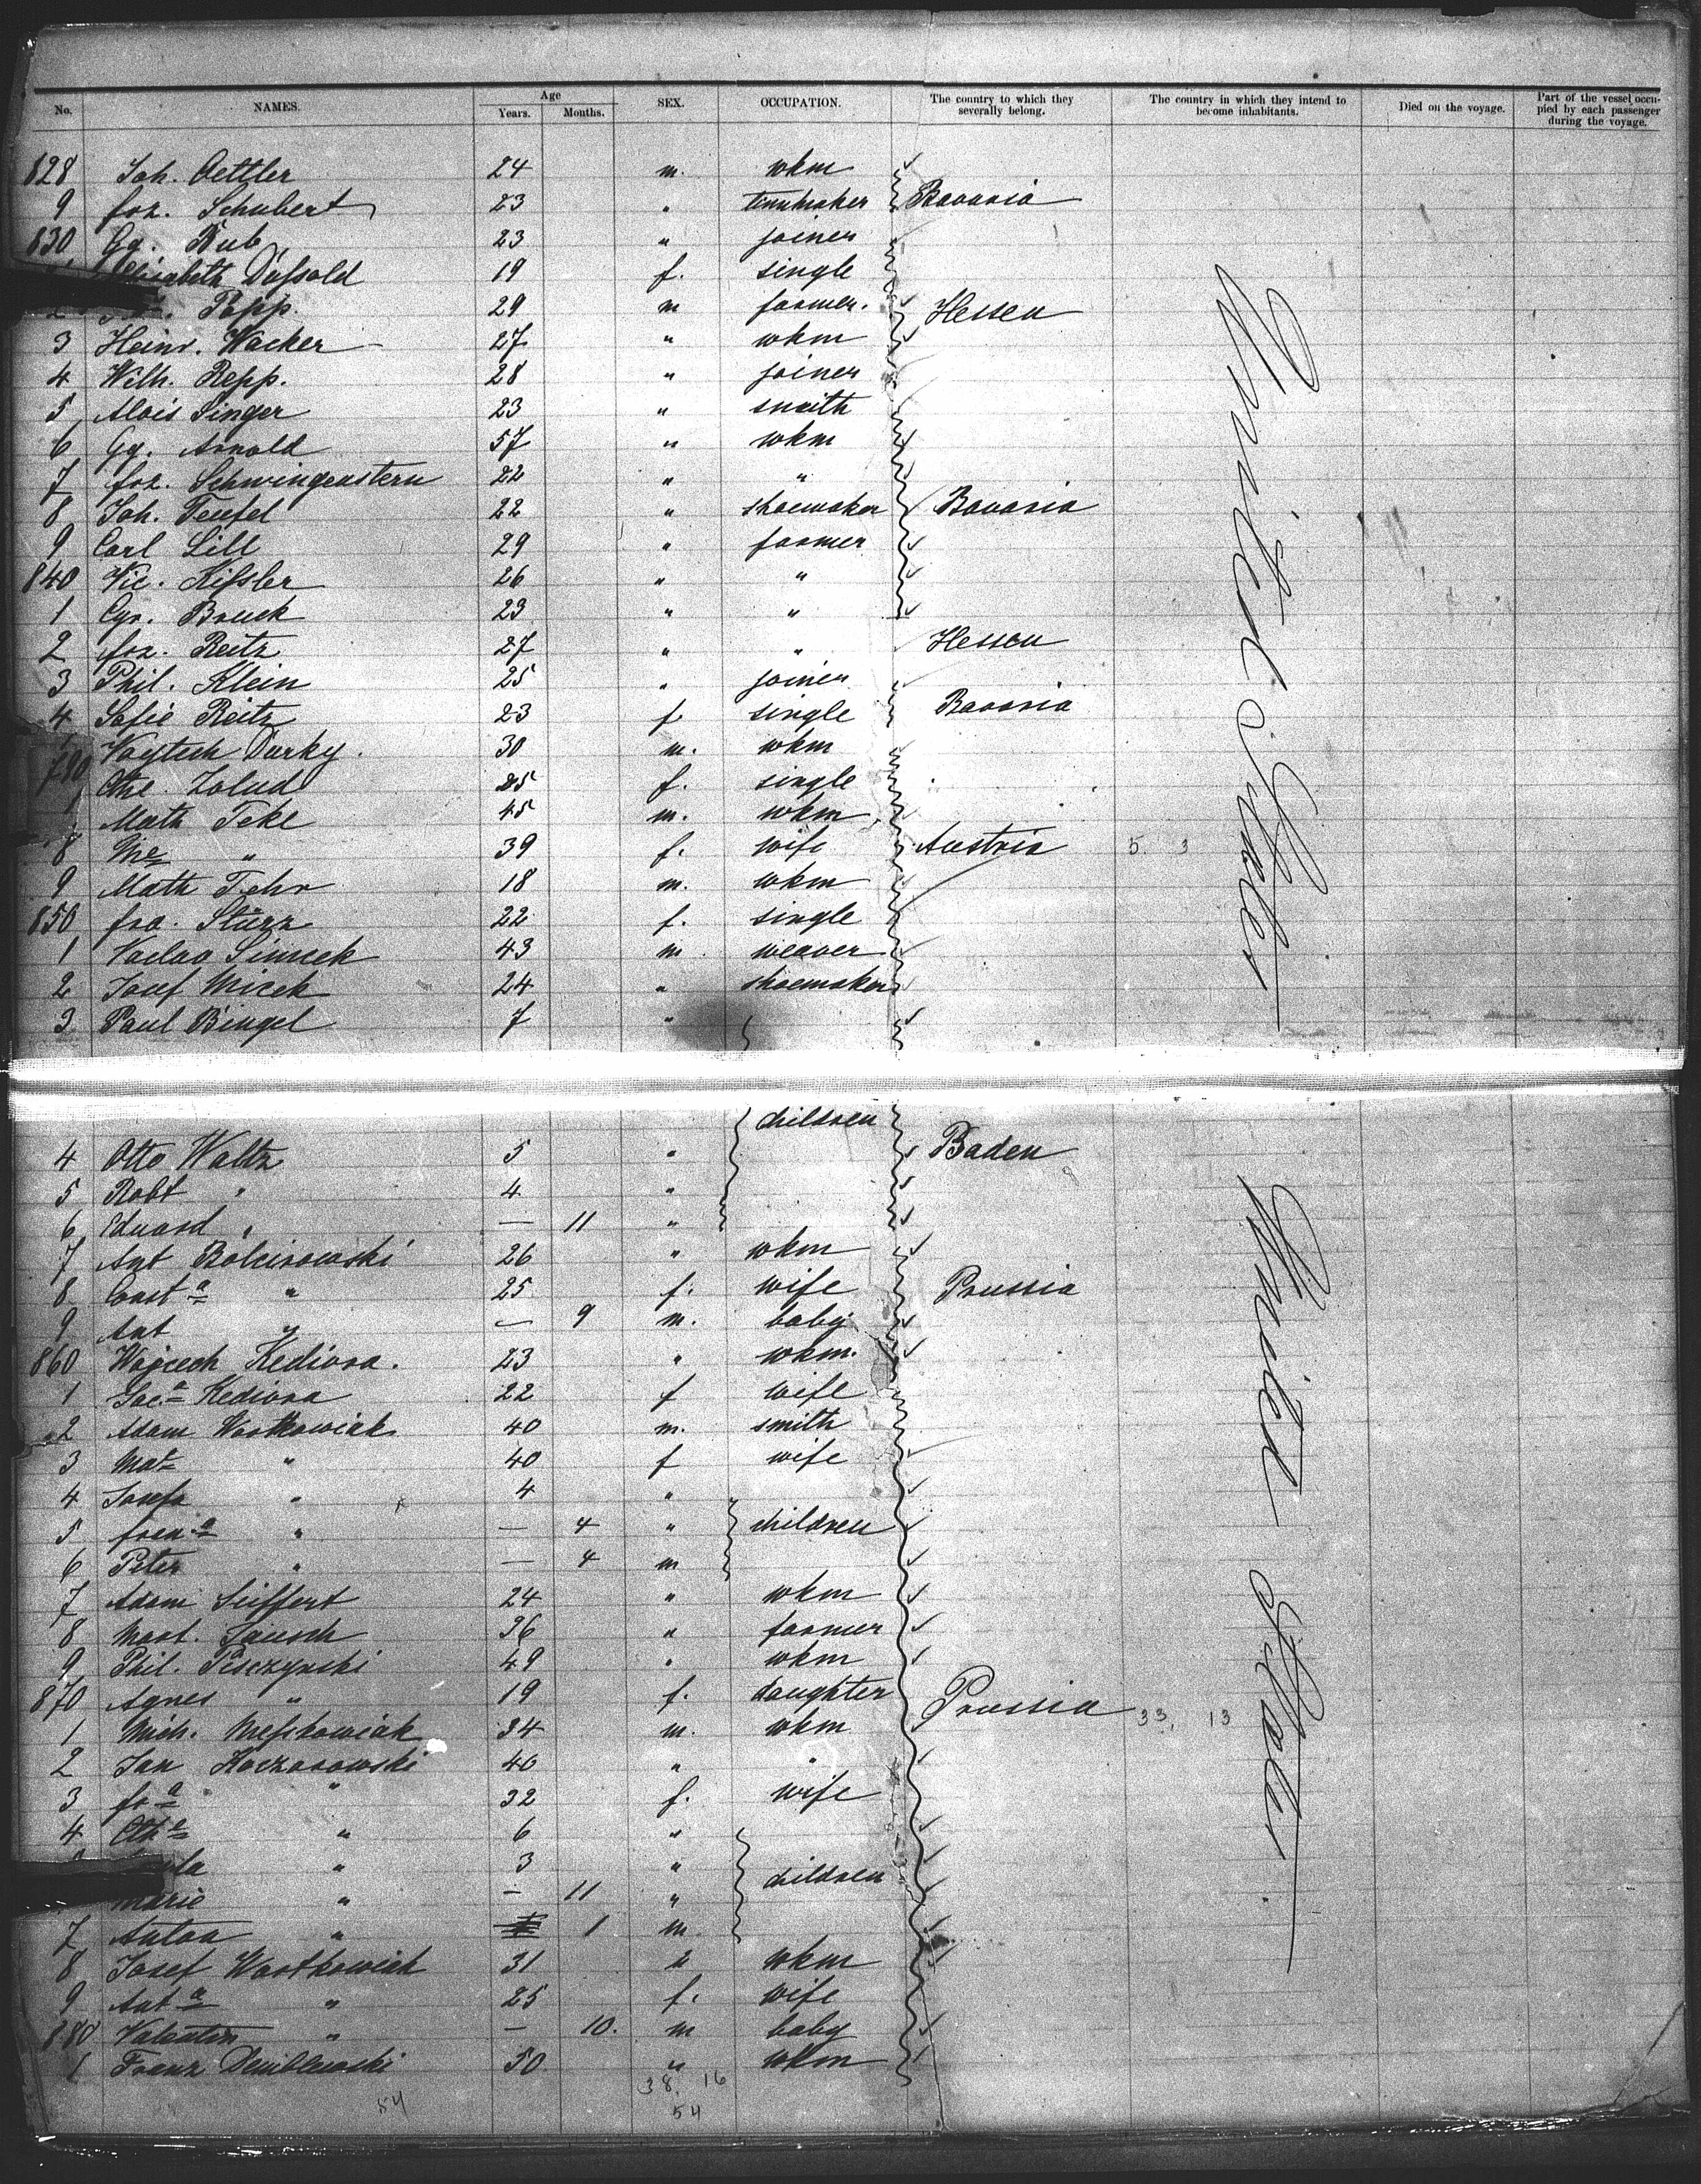 No. NAMES. Age Years. Months. SEX. OCCUPATION. The country to which they severally belong. The country in which they intend to become inhabitants. Died on the voyage. Part of the vessel occupied by each passenger during the voyage.
828 Joh. Oettler 24 m. wkm
9 foz. Schubert 23 " Bavaria
830 Gg. Bub 23 " joiner
Elisabeth 19 f. single
2 Popp. 29 m farmer. Hessen
3 Heinr. Wacker 27 " wkm
4 Wilh. Repp. 28 " joiner
5 Alois Singer 23 " smith
6 Gg. Arnold 57 " wkm
7 foz. Schwingenstern 22 " "
8 Joh. Teufel 22 " shoemaker Bavaria
9 Carl Lill 29 " farmer
840 Nic. Kissler 26 " "
1 Cyr. Bruck 23 " "
2 foz. Reitz 27 " " Hessen
3 Phil. Klein 25 " joiner
4 Sofie Reitz 23 f single Bavaria
Voytech Durky. 30 m. wkm
Zolud 25 f. single
Math Teke 45 m. wkm
8 " 39 f. wife Austria 5. 3
9 Math Fehr 18 m. wkm
850 fra. Stürz 22 f. single
1 Vaclav Simecek 43 m weaver
2 Josef Micek 24 " shoemaker
3 Paul Bingel 7 "
children
4 Otto Waltz 5 " Baden
5 Robt " 4 "
6 Eduard " — 11 "
7 Ant Bolcirowski 26 " wkm
8 Const a " 25 f. wife Prussia
9 Ant " — 9 m. baby
860 Wojcech Kediora. 23 " wkm.
1 Kediora 22 f wife
2 Adam Wostkowiak 40 m. smith
3 " 40 f wife
4 Josefa " 4 "
5 fran a " — 4 " children
6 Peter " — 4 m
7 Adam Seiffert 24 " wkm
8 Mart. Jausch 36 " farmer
9 Phil. Pisczynski 49 " wkm
870 Agnes " 19 f. daughter Prussia 33, 13
1 Mich. Messkowiak 34 m. wkm
2 Jan Koczorowski 40 " "
3 fr a " 32 f. wife
4 " 6 "
" 3 " children
Marie " — 11 "
7 Anton " 1 m.
8 Josef Wostkowiak 31 " wkm
9 Ant a " 25 f. wife
880 Valentin " — 10. m baby
1 Franz 50 " wkm
54 38. 16
54
United States
United States